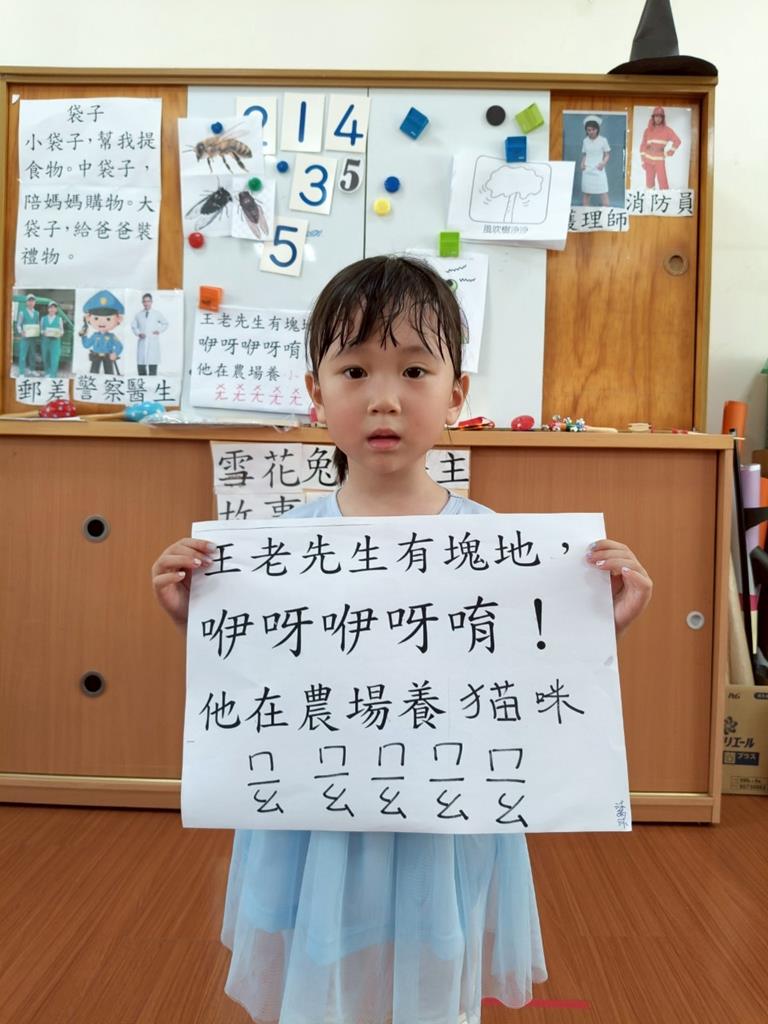 袋子
小袋子，幫我提
食物。中袋子，
陪媽媽購物。大
袋子，給爸爸裝
禮物。
214
3
5
5
風吹樹沙沙
護理師
消防員
郵差
警察
醫生
王老先生有塊地
咿呀咿呀唷
他在農場養
ㄨ ㄨ ㄨ ㄨ ㄨ
ㄤ ㄤ ㄤ ㄤ ㄤ
雪花兔 主
故事
王老先生有塊地，
咿呀咿呀唷！
他在農場養猫咪
ㄇㄧㄠ ㄇㄧㄠ ㄇㄧㄠ ㄇㄧㄠ ㄇㄧㄠ